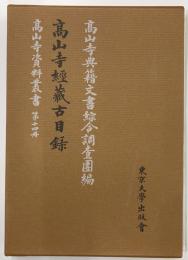 高山寺典籍文書綜合調査團編
高山寺經藏古目録
高山寺資料叢書 第十四冊
東京大學出版會